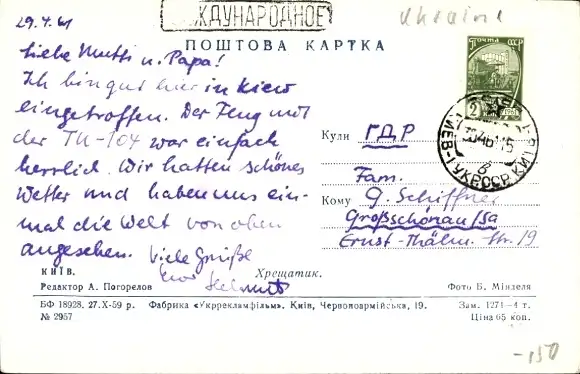 29.4.61
МЕЖДУНАРОДНОЕ
Ukraine
ПОШТОВА КАРТКА
ПОЧТА СССР
Liebe Mutti u. Papa!
Ich bin gut hier in Kiew
eingetroffen. Der Flug mit
der TU-104 war einfach
herrlich. Wir hatten schönes
Wetter und haben uns ein-
mal die Welt von oben
angesehen. Viele Grüße
Euer Helmut
Кули ГДР
Fam.
Кому G. Schiffner
Großschönau/Sa
Ernst-Thälm. Str. 19
КИЇВ. Хрещатик.
Редактор А. Погорелов Фото Б. Мінделя
БФ 18928. 27.X-59 р. Фабрика «Укррекламфільм». Київ, Червоноармійська, 19. Зам. 1271-4 т.
№ 2957 Ціна 65 коп.
-150